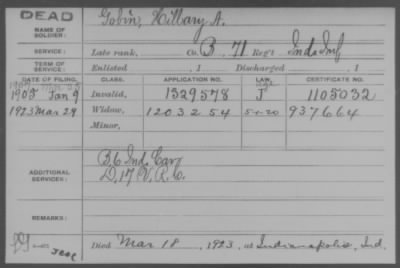 DEAD
NAME OF SOLDIER: Gobin, Hillary A.
SERVICE: Late rank, Co. B, 71 Reg't Ind. Inf
TERM OF SERVICE: Enlisted , 1 Discharged , 1
DATE OF FILING. CLASS. APPLICATION NO. LAW. CERTIFICATE NO.
1905 Jan 9 Invalid, 1329578 J 1105032
1923 Mar 29 Widow, 1203254 5-1-20 937664
Minor,
ADDITIONAL SERVICES: B. 6 Ind. Cav
D, 17 V. R. C.
REMARKS:
Died Mar 18, 1923, at Indianapolis, Ind.